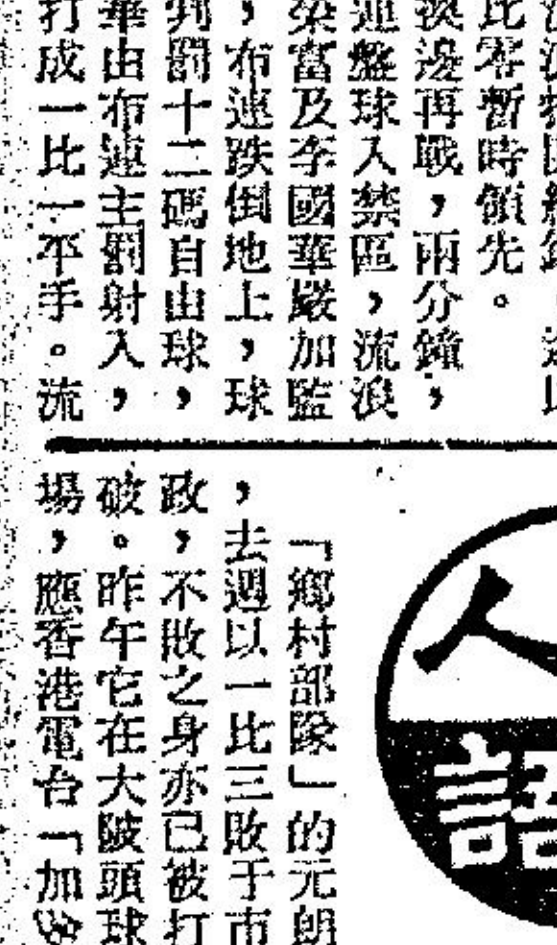 比零暫時領先。
淡邊再戰，兩分鐘，
連盤球入禁區，流浪
梁富及李國華嚴加監
，布連跌倒地上，球
判罰十二碼自由球，
華由布連主罰射入，
打成一比一平手。流
人
語
「鄉村部隊」的元朗
，去週以一比三敗于市
政，不敗之身亦已被打
破。昨午它在大陂頭球
場，應香港電台「加